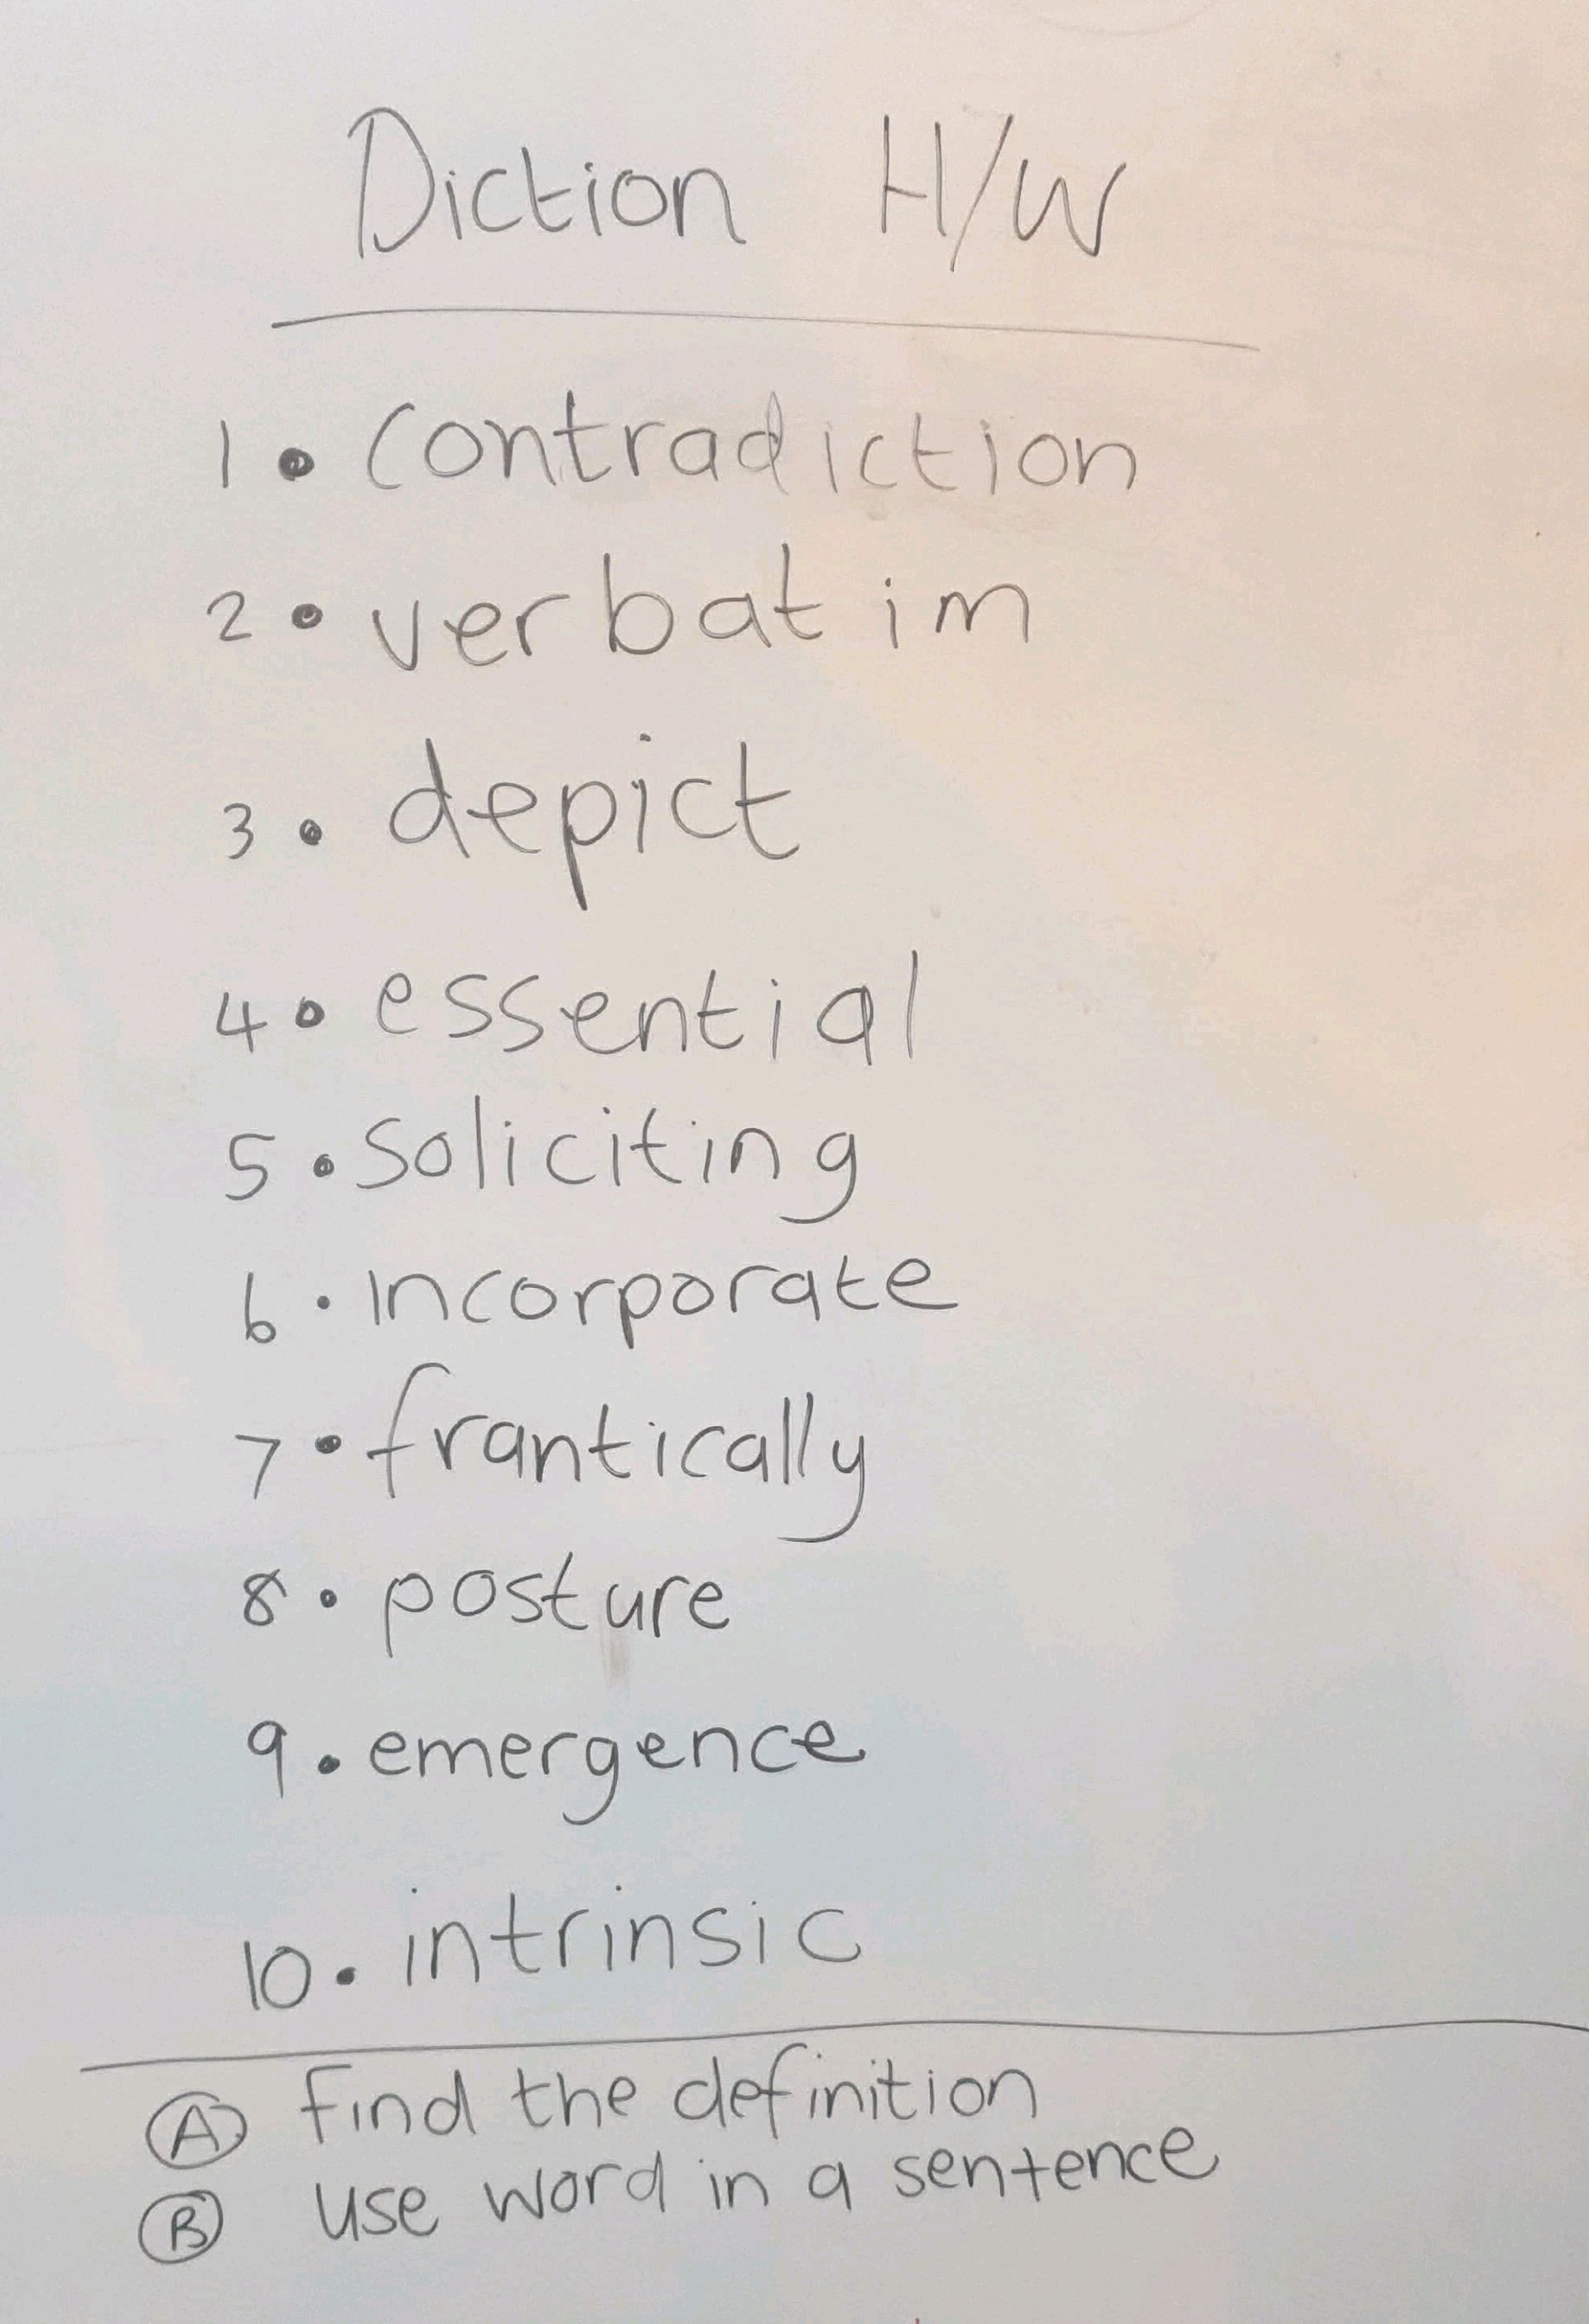 Diction H/W
1. Contradiction
2. verbatim
3. depict
4. essential
5. soliciting
6. incorporate
7. frantically
8. posture
9. emergence
10. intrinsic
Ⓐ find the definition
Ⓑ use word in a sentence